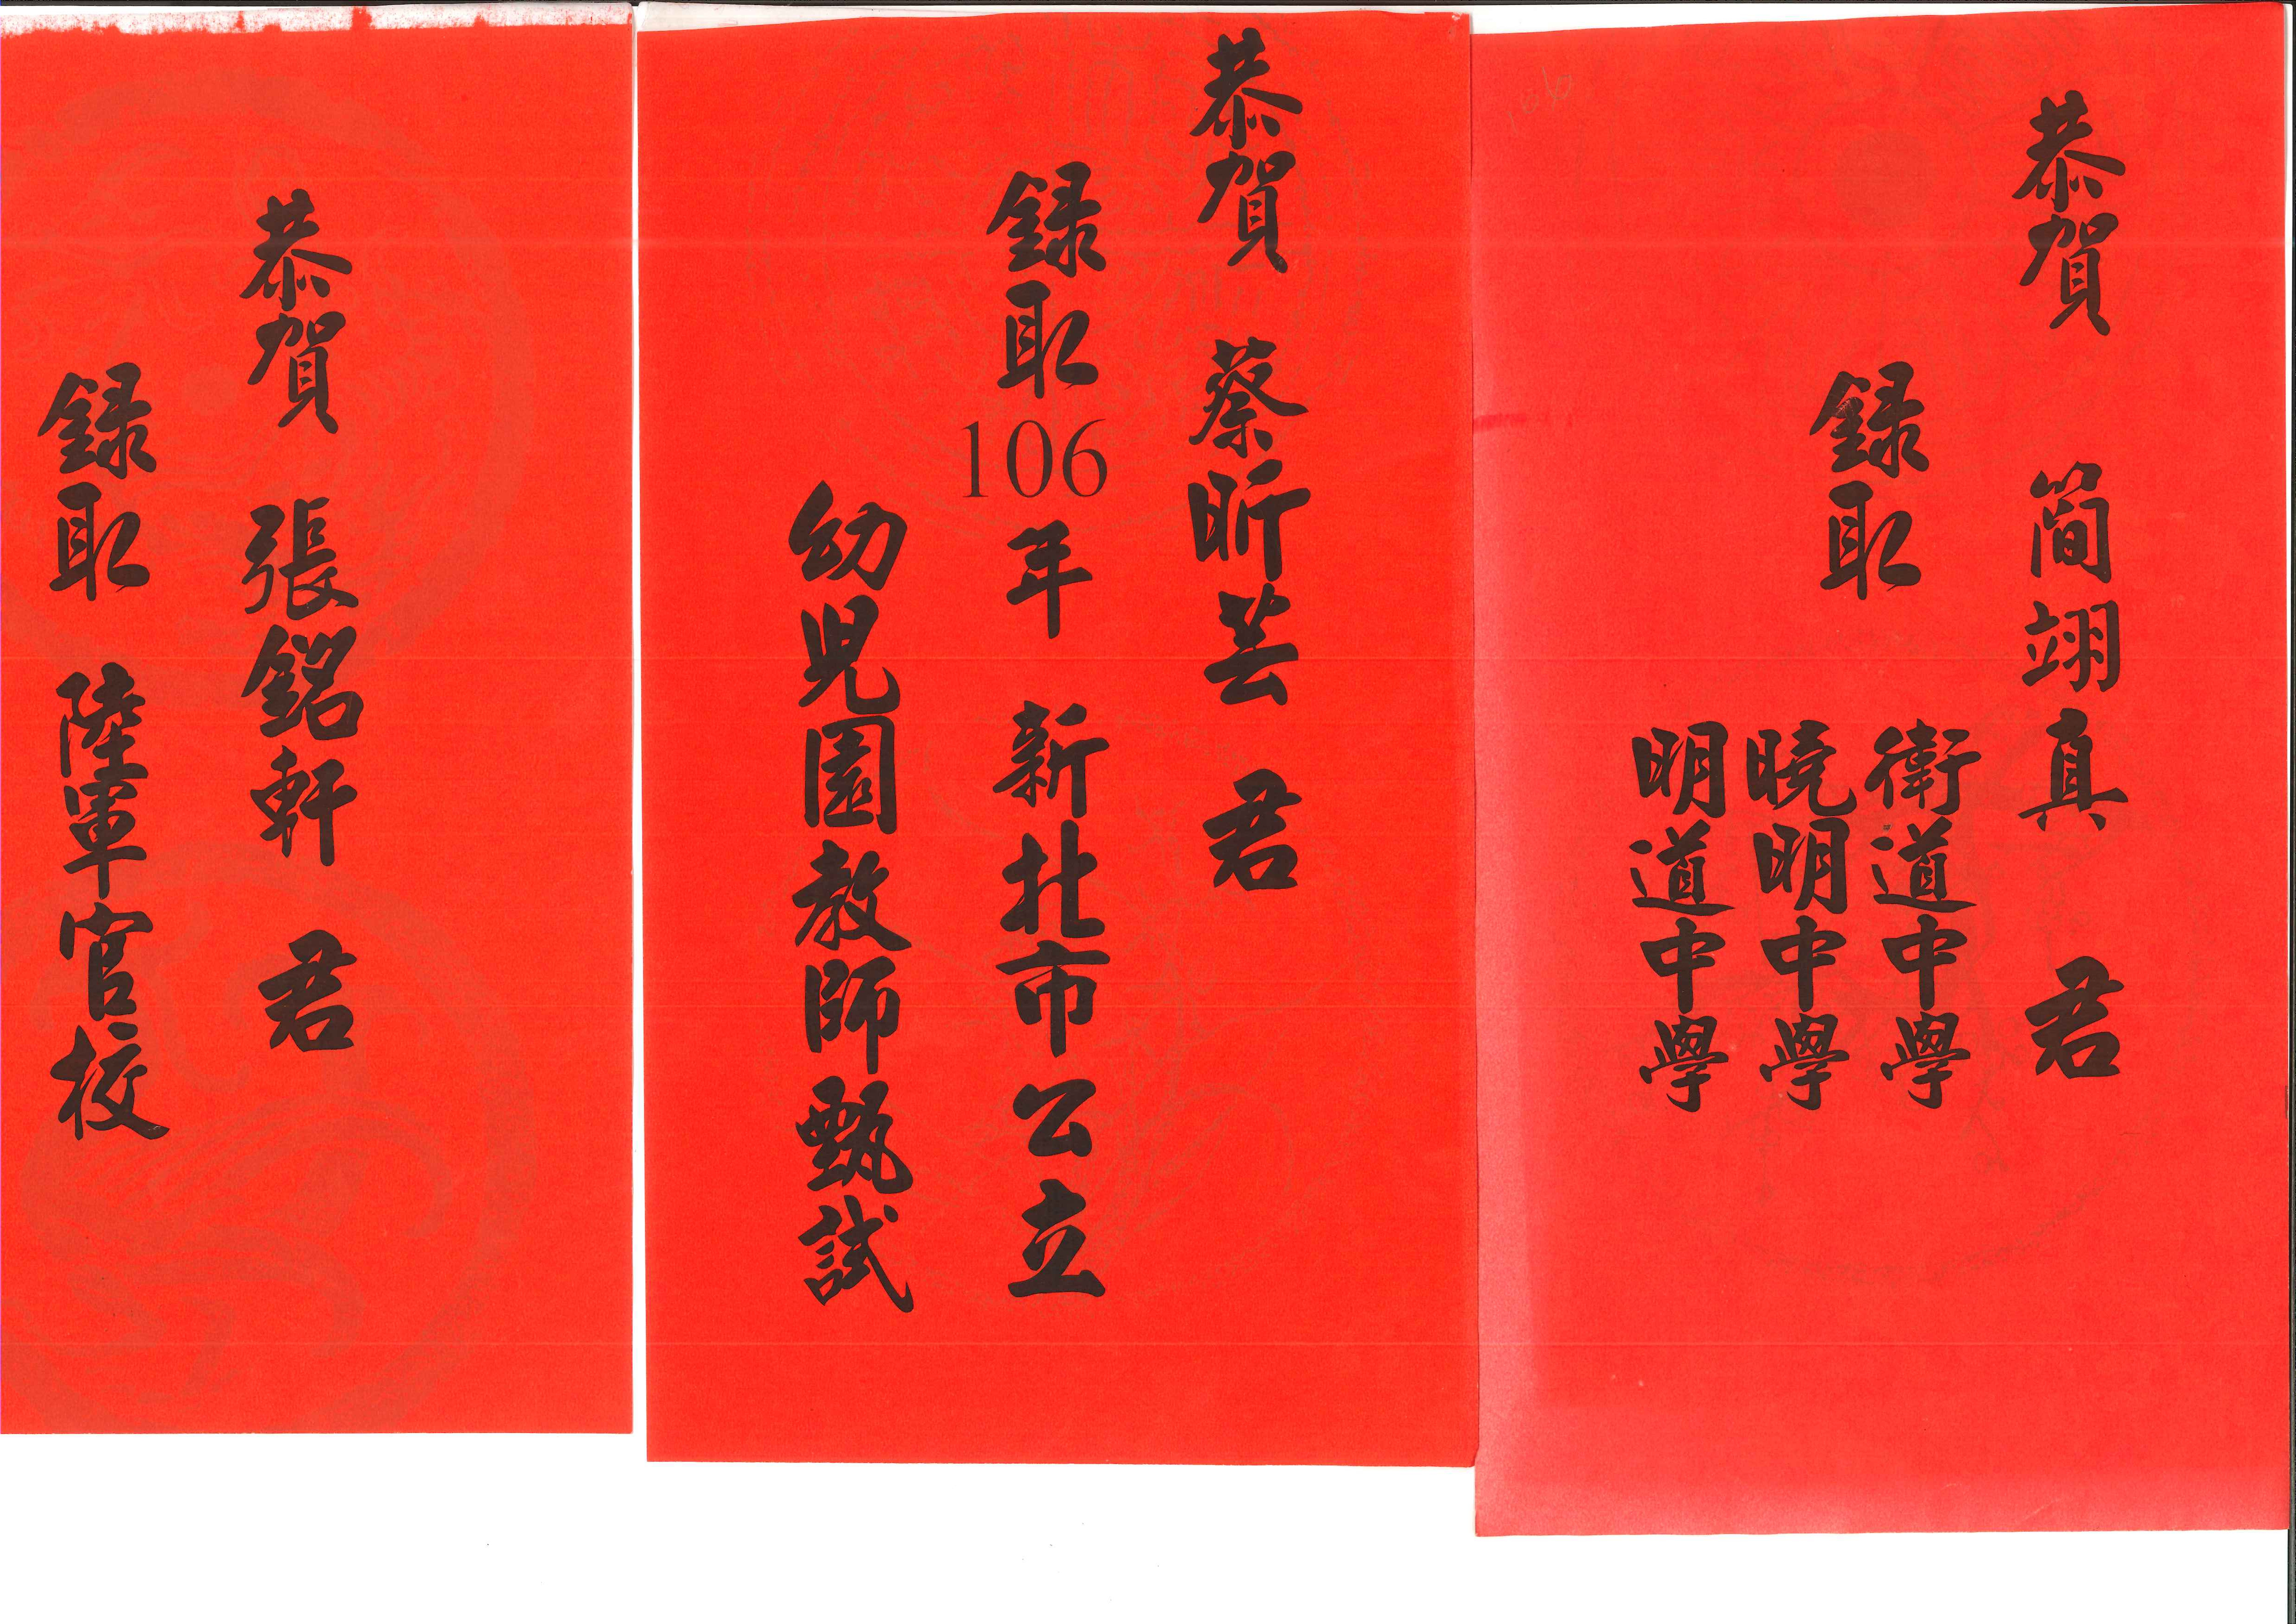 恭賀 簡翊真 君
錄取
衛道中學
曉明中學
明道中學
恭賀 蔡昕芸 君
錄取106年 新北市公立
幼兒園教師甄試
恭賀 張銘軒 君
錄取 陸軍官校